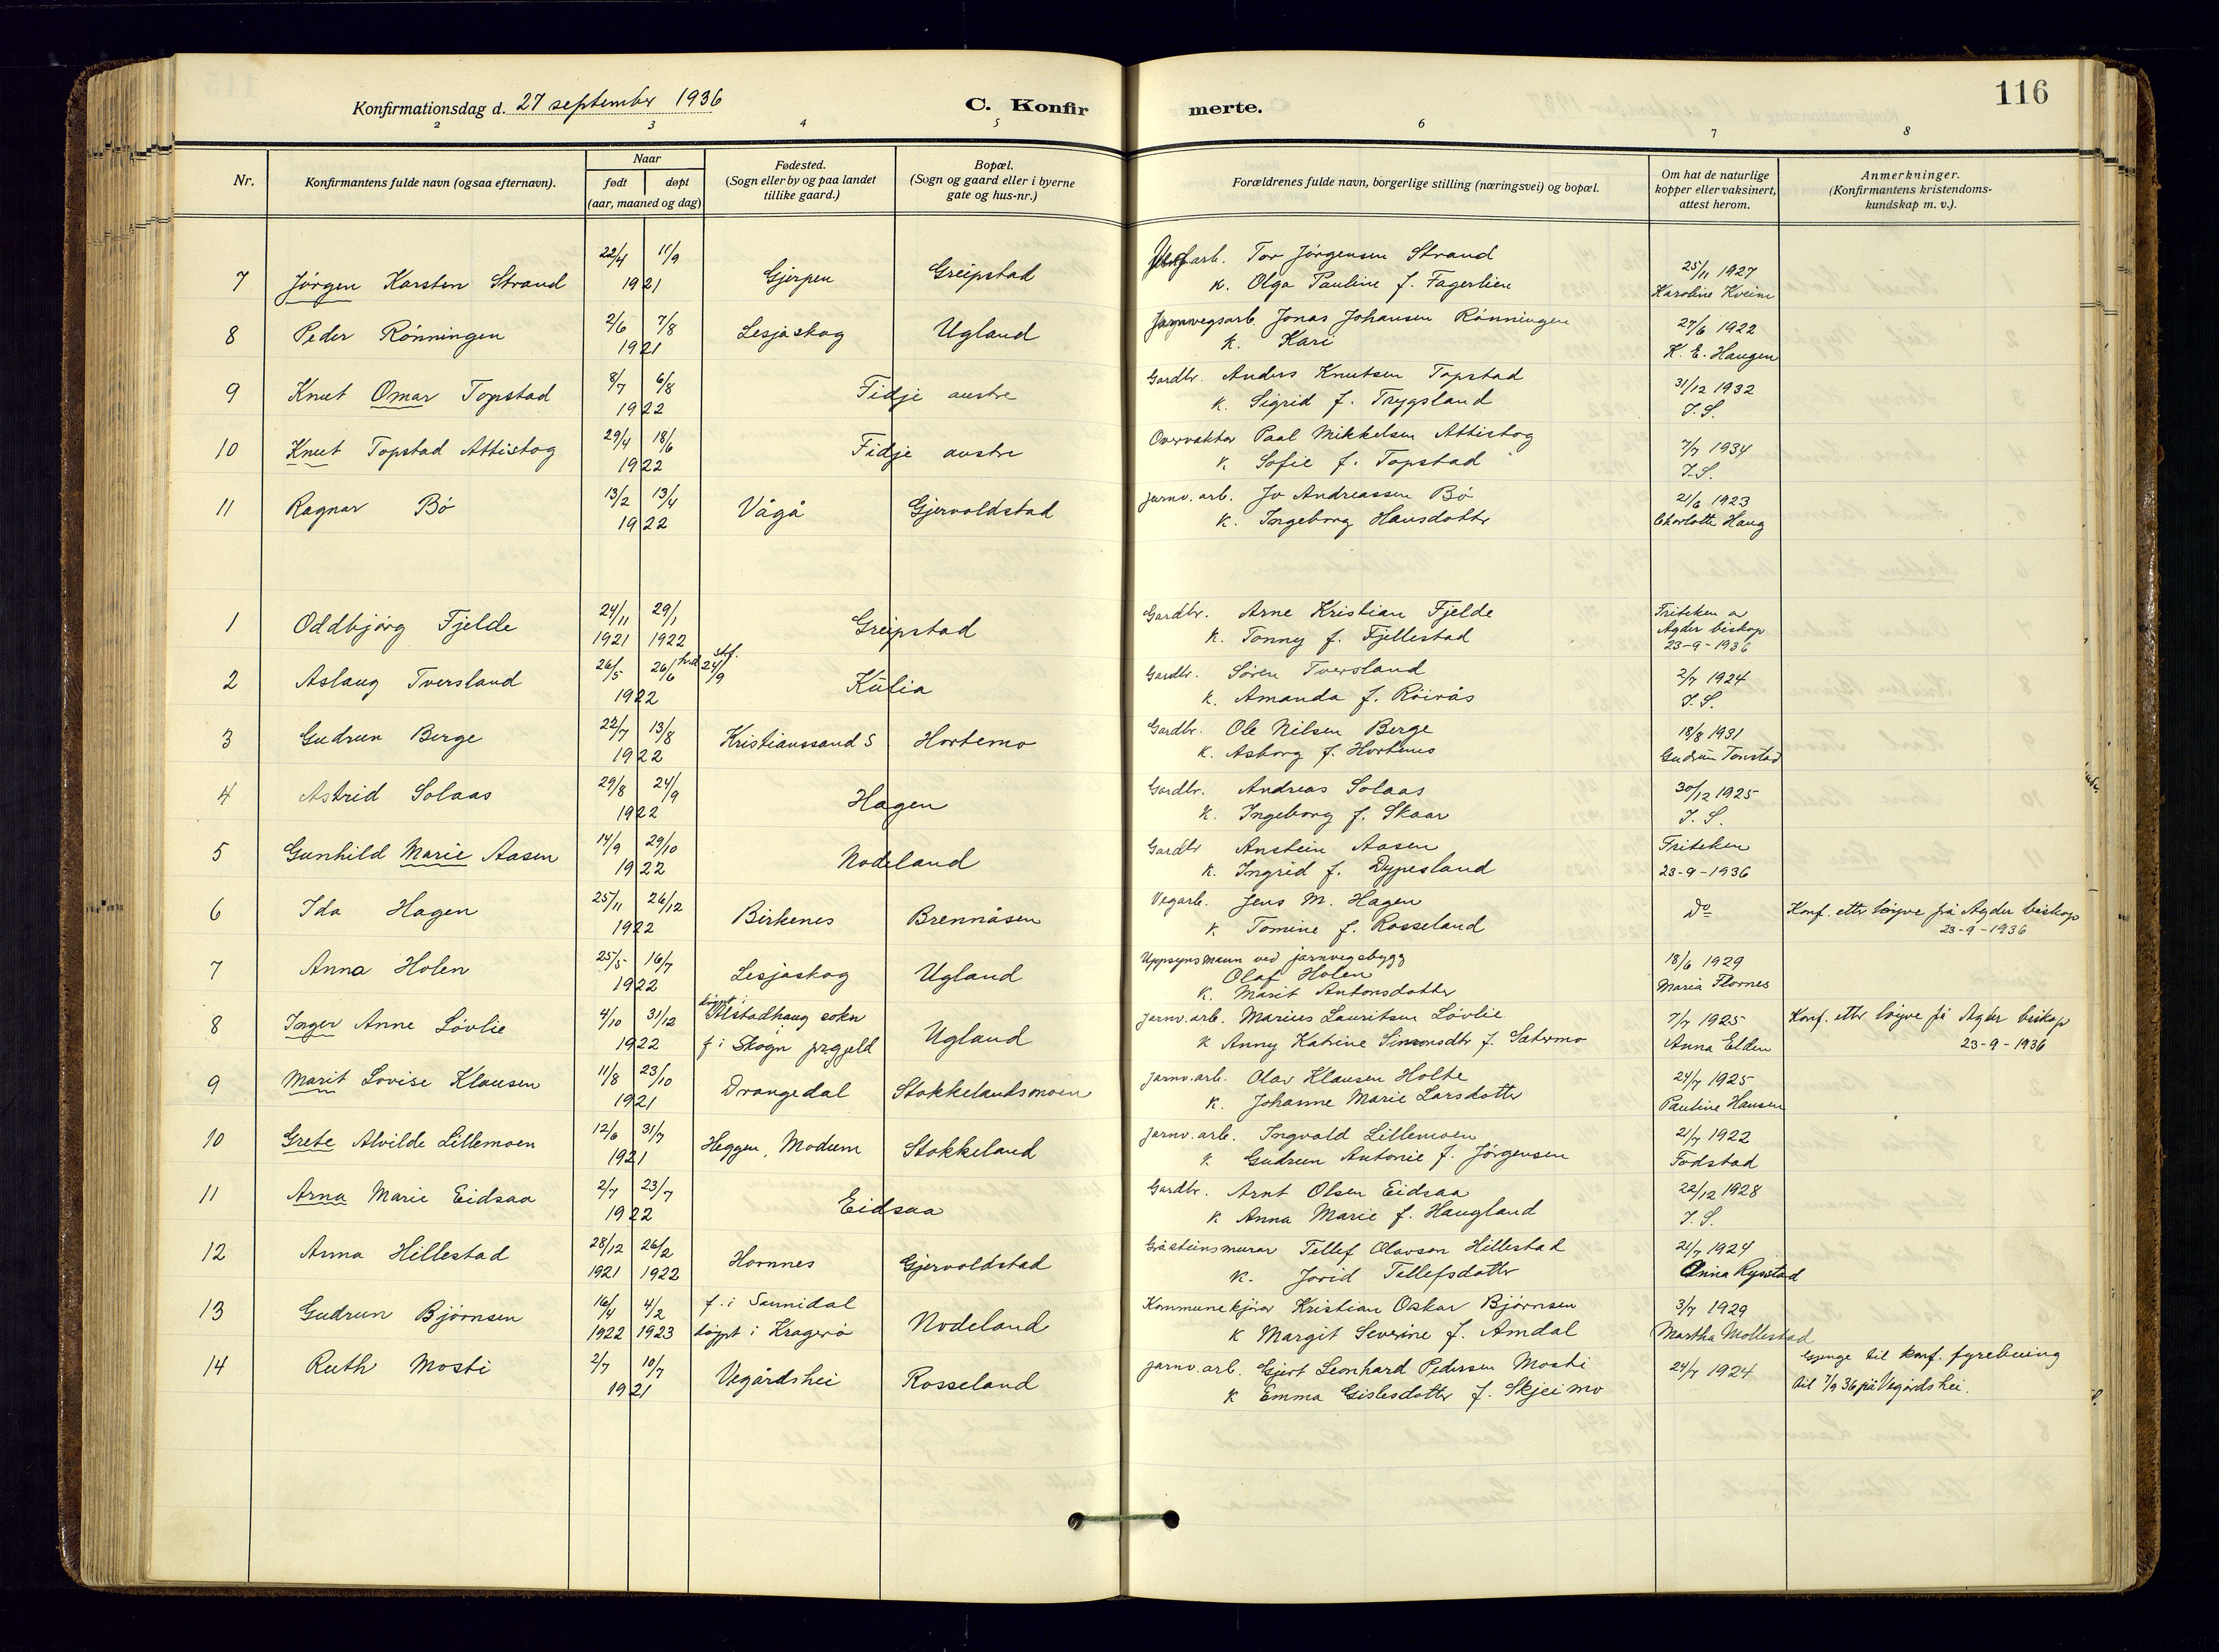 116
Konfirmationsdag d. 27 september 1936
C. Konfirmerte.
2 3 4 5 6 7 8
Nr.
Konfirmantens fulde navn (ogsaa efternavn).
Naar
født døpt
(aar, maaned og dag)
Fødested.
(Sogn eller by og paa landet
tillike gaard.)
Bopæl.
(Sogn og gaard eller i byerne
gate og hus-nr.)
Forældrenes fulde navn, borgerlige stilling (næringsvei) og bopæl.
Om hat de naturlige
kopper eller vaksinert,
attest herom.
Anmerkninger.
(Konfirmantens kristendoms-
kundskap m. v.).
22/4 11/9 arb. Tor Jörgensen Strand
7 Jörgen Karsten Strand 1921 Gjerpen Greipstad K. Olga Pauline f. Fagerlien 25/11 1927
Karoline Kveim
2/6 7/8 Jarnvegsarb. Jonas Johansen Rönningen 27/6 1922
8 Peder Rönningen 1921 Lesjaskog Ugland K. Kari K. E. Haugen
8/7 6/8 Gardbr. Anders Knutsen Topstad 31/12 1932
9 Knut Omar Topstad 1922 Fidje austre K. Sigrid f. Trygsland I. S.
29/4 18/6 Overvakter Paal Mikkelsen Attistog 7/7 1934
10 Knut Topstad Attistog 1922 Fidje austre K Sofie f. Topstad I. S.
13/2 13/4 jarnv. arb. Jo Andreassen Bö 21/6 1923
11 Ragnar Bö 1922 Vågå Gjervoldstad K. Ingeborg Hansdotter Charlotte Haug
24/11 29/1 Gardbr. Arne Kristian Fjelde Friteken av
1 Oddbjörg Fjelde 1921 1922 Greipstad K. Tonny f. Fjellestad Agder biskop
23-9-1936
26/5 26/6 stf. 24/9 Gardbr. Sören Tversland 2/7 1924
2 Aslaug Tversland 1922 Kulia K. Amanda f. Röirås I. S.
22/7 13/8 Gardbr. Ole Nilsen Berge 18/8 1931
3 Gudrun Berge 1922 Kristianssand S Hortemo K. Asborg f. Hortemo Gudrun Tonstad
29/8 24/9 Gardbr. Andreas Solaas 30/12 1925
4 Astrid Solaas 1922 Hagen K. Ingeborg f. Skaar I. S.
14/9 29/10 Gardbr Anstein Aasen Friteken
5 Gunhild Marie Aasen 1922 Nodeland K. Ingrid f. Dypesland 23-9-1936
25/11 26/12 Vegarb. Jens M. Hagen Do Konf. etter löyve på Agder biskop
6 Ida Hagen 1922 Birkenes Brennåsen K Tomine f. Rosseland 23-9-1936
25/5 16/7 Uppsynsmann ved jarnvegsbygg 18/6 1929
7 Anna Holen 1922 Lesjaskog Ugland Olaf Holen Maria Flornes
K. Marit Antonsdotter
4/10 31/12 döypt i Alstadhaug sokn jarnv. arb. Marius Lauritsen Lövlie 7/7 1925 Konf. etter löyve på Agder biskop
8 Inger Anne Lövlie 1922 f i Skogn prgjeld Ugland K Anny Katrine Simonsdtr f. Sætermo Anna Elden 23-9-1936
11/8 23/10 jarnv. arb. Olav Klausen Holte 24/7 1925
9 Marit Lovise Klausen 1921 Drangedal Stokkelandsmoen K. Johanne Marie Larsdotter Pauline Hansen
12/6 31/7 jarnv. arb. Ingvald Lillemoen 21/7 1922
10 Grete Alvilde Lillemoen 1921 Heggen, Modum Stokkeland K Gudrun Antonie f. Jörgensen Fodstad
2/7 23/7 Gardbr. Arnt Olsen Eidsaa 22/12 1928
11 Arna Marie Eidsaa 1922 Eidsaa K Anna Marie f. Haugland I. S.
28/12 26/2 Gråsteinsmurar Tellef Olavson Hillestad 21/7 1924
12 Anna Hillestad 1921 1922 Hornnes Gjervoldstad K. Jorid Tellefsdotter Anna Rynstad
16/4 4/2 f. i Sannidal Kommunekjörar Kristian Oskar Björnsen 3/7 1929
13 Gudrun Björnsen 1922 1923 döypt i Kragerö Nodeland K Margit Severine f. Amdal Martha Mollestad
2/7 10/7 jarnv. arb. Gjert Leonhard Pedersen Mosti 24/7 1924 Gjenge til konf. fyrebuing
14 Ruth Mosti 1921 Vegårdshei Rosseland K Emma Gislesdotter f. Skjeimo til 7/9 36 på Vegårdshei.